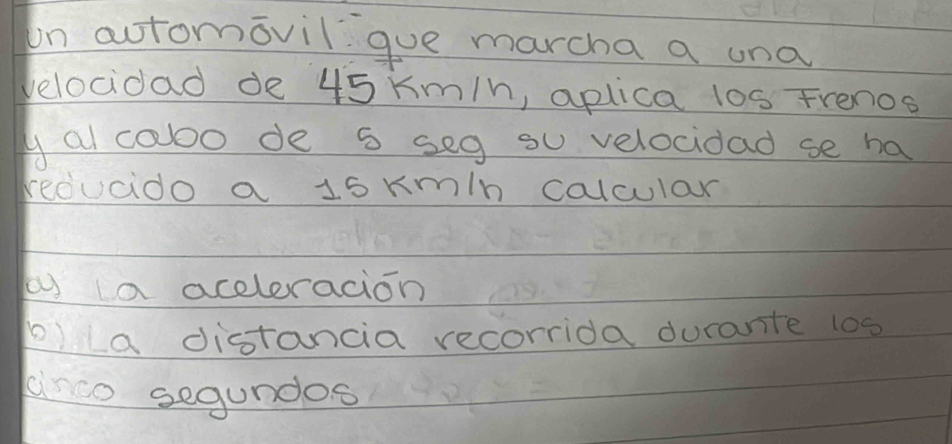 un automóvil que marcha a una
velocidad de 45 Km/h, aplica los Frenos
y al cabo de 5 seg su velocidad se ha
reducido a 15 Km/h calcular
a) La aceleración
b) La distancia recorrida durante los
cinco segundos